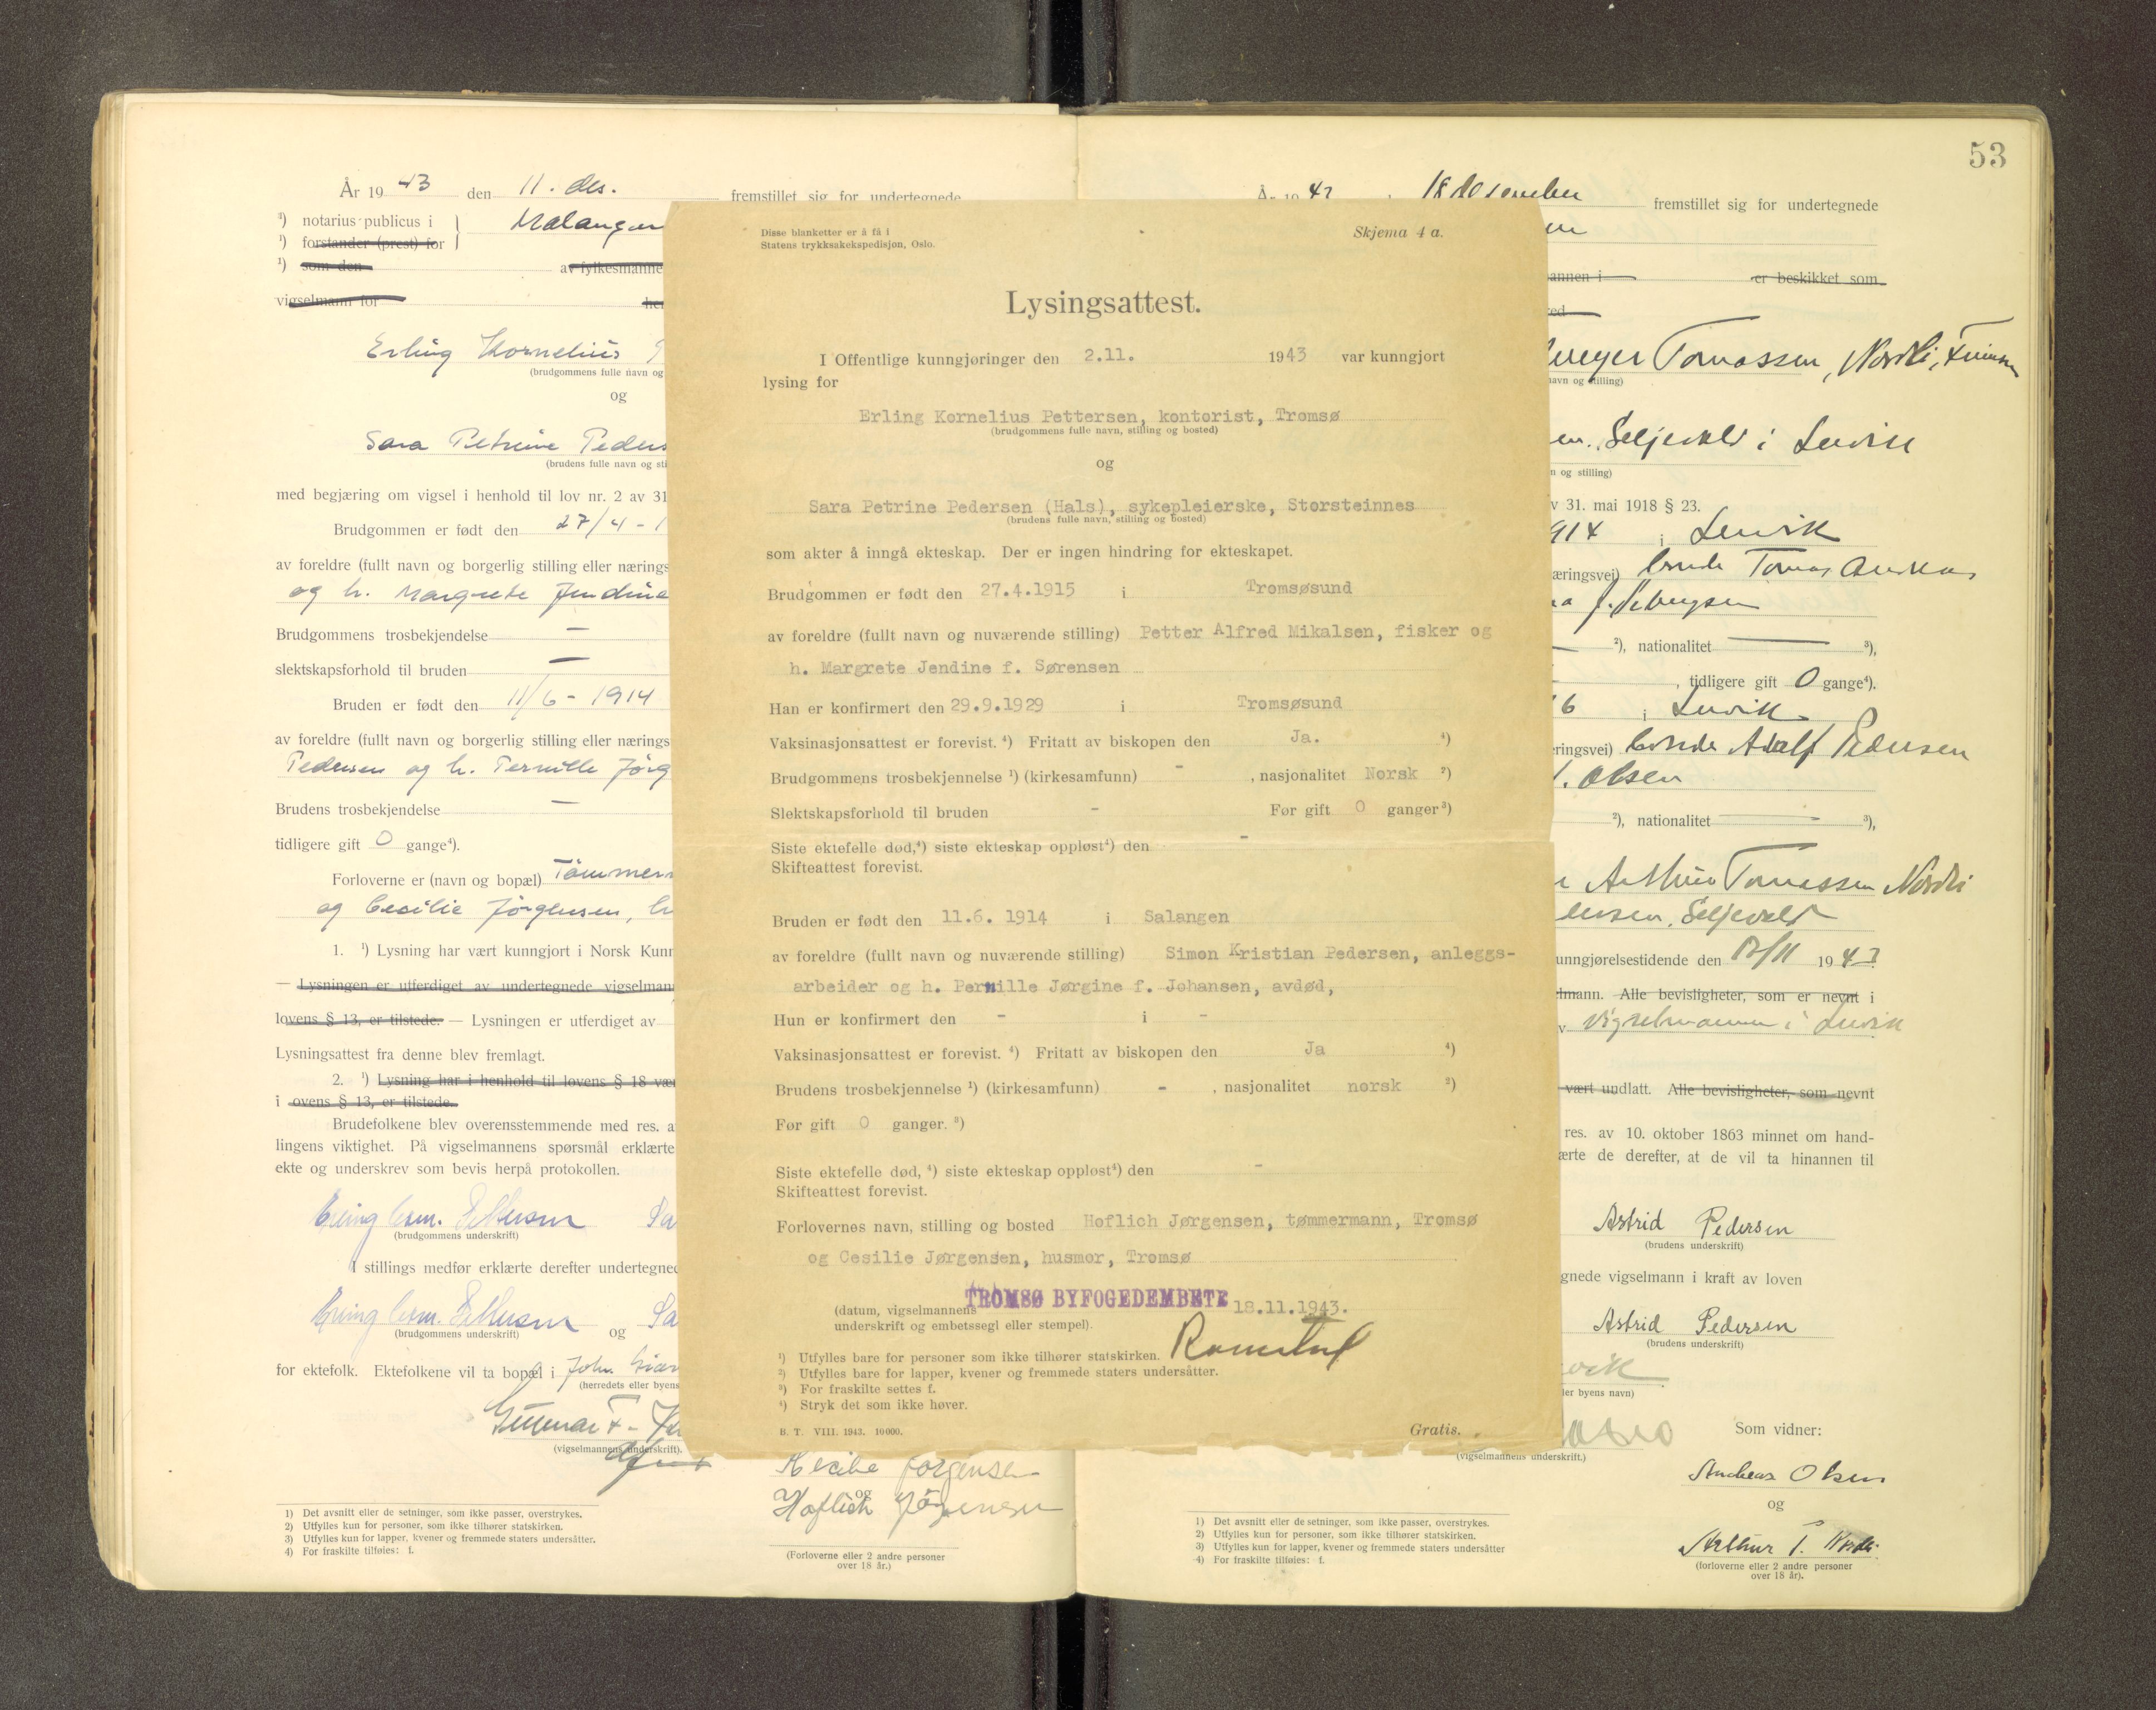 År 19 43 den 11. des. fremstillet sig for undertegnede
¹) notarius publicus i Malangen
¹) forstander (prest) for
¹) som den av fylkesmanne
vigselmann for her
Erling Kornelius
(brudgommens fulle navn og
og
Sara Petrine Peders
(brudens fulle navn og sti
med begjæring om vigsel i henhold til lov nr. 2 av 31
Brudgommen er født den 27/4 - 1
av foreldre (fullt navn og borgerlig stilling eller nærings
og h. Margrete Jendine
Brudgommens trosbekjendelse —
slektskapsforhold til bruden —
Bruden er født den 11/6 - 1914
av foreldre (fullt navn og borgerlig stilling eller nærings
Pedersen og h. Pernille Jörg
Brudens trosbekjendelse —
tidligere gift 0 gange⁴).
Forloverne er (navn og bopæl) Tömmerm
og Cecilie Jörgensen, h
1. ¹) Lysning har vært kunngjort i Norsk Kunn
— Lysningen er utferdiget av undertegnede vigselmann
lovens § 13, er tilstede. — Lysningen er utferdiget av
Lysningsattest fra denne blev fremlagt.
2. ¹) Lysning har i henhold til lovens § 18 vær
i ovens § 13, er tilstede.
Brudefolkene blev overensstemmende med res. a
lingens viktighet. På vigselmannens spørsmål erklærte
ekte og underskrev som bevis herpå protokollen.
Erling Corn. Pettersen Sa
(brudgommens underskrift)
I stillings medfør erklærte derefter undertegned
Erling Corn. Pettersen og Sa
(brudgommens underskrift)
for ektefolk. Ektefolkene vil ta bopæl i
(herredets eller byens
(vigselmannens underskrift).
Jörgensen
og
Hoflich Jörgensen
(Forloverne eller 2 andre personer
over 18 år.)
1) Det avsnitt eller de setninger, som ikke passer, overstrykes.
2) Utfylles kun for personer, som ikke tilhører statskirken.
3) Utfylles kun for lapper, kvener og fremmede staters undersåtter.
4) For fraskilte tilføies: f.
Disse blanketter er å få i
Statens trykksakekspedisjon, Oslo.
Skjema 4 a.
Lysingsattest.
I Offentlige kunngjøringer den 2.11. 1943 var kunngjort
lysing for
Erling Kornelius Pettersen, kontorist, Tromsø
(brudgommens fulle navn, stilling og bosted)
og
Sara Petrine Pedersen (Hals), sykepleierske, Storsteinnes
(brudens fulle navn, stilling og bosted)
som akter å inngå ekteskap. Der er ingen hindring for ekteskapet.
Brudgommen er født den 27.4.1915 i Tromsøsund
av foreldre (fullt navn og nuværende stilling) Petter Alfred Mikalsen, fisker og
h. Margrete Jendine f. Sørensen
Han er konfirmert den 29.9.1929 i Tromsøsund
Vaksinasjonsattest er forevist. ⁴) Fritatt av biskopen den Ja. ⁴)
Brudgommens trosbekjennelse ¹) (kirkesamfunn) - , nasjonalitet Norsk ²)
Slektskapsforhold til bruden - Før gift 0 ganger³)
Siste ektefelle død,⁴) siste ekteskap oppløst⁴) den -
Skifteattest forevist.
Bruden er født den 11.6. 1914 i Salangen
av foreldre (fullt navn og nuværende stilling) Simon Kristian Pedersen, anleggs-
arbeider og h. Pernille Jørgine f. Johansen, avdød,
Hun er konfirmert den - i -
Vaksinasjonsattest er forevist. ⁴) Fritatt av biskopen den Ja ⁴)
Brudens trosbekjennelse ¹) (kirkesamfunn) - , nasjonalitet norsk ²)
Før gift 0 ganger. ³)
Siste ektefelle død, ⁴) siste ekteskap oppløst⁴) den -
Skifteattest forevist.
Forlovernes navn, stilling og bosted Hoflich Jørgensen, tømmermann, Tromsø
og Cesilie Jørgensen, husmor, Tromsø
TROMSØ BYFOGEDEMBETE 18.11.1943.
(datum, vigselmannens
underskrift og embetssegl eller stempel).
¹) Utfylles bare for personer som ikke tilhører statskirken.
²) Utfylles bare for lapper, kvener og fremmede staters undersåtter.
³) For fraskilte settes f.
⁴) Stryk det som ikke høver.
B. T. VIII. 1943. 10000.
Gratis.
53
År 19 43 18 desember fremstillet sig for undertegnede
en
annen i er beskikket som
ed
Tomassen, Nordli,
navn og stilling)
en. Seljevold i Lenvik
n og stilling)
v 31. mai 1918 § 23.
914 i Lenvik
æringsvei) bonde Tomas Andreas
²), nationalitet — ³),
, tidligere gift 0 gange⁴).
16 i Lenvik
eringsvei) bonde Adolf Pedersen
Olsen
²), nationalitet — ³),
Arthur Tomassen Nordli
dersen, Seljevold
unngjørelsestidende den 12/11 19 43
lmann. Alle bevisligheter, som er nevnt i
v vigselmannen i Lenvik
vært undlatt. Alle bevisligheter, som nevnt
res. av 10. oktober 1863 minnet om hand-
ærte de derefter, at de vil ta hinannen til
Astrid Pedersen
(brudens underskrift)
gnede vigselmann i kraft av loven
Astrid Pedersen
(brudens underskrift)
vik
ler byens navn)
Som vidner:
(vigselmannens underskrift.)
Andreas Olsen
og
Arthur T. Nordli
(forloverne eller 2 andre personer
over 18 år).
1) Det avsnitt eller de setninger, som ikke passer, overstrykes.
2) Utfylles kun for personer, som ikke tilhører statskirken.
3) Utfylles kun for lapper, kvener og fremmede staters undersåtter
4) For fraskilte tilføies: f.